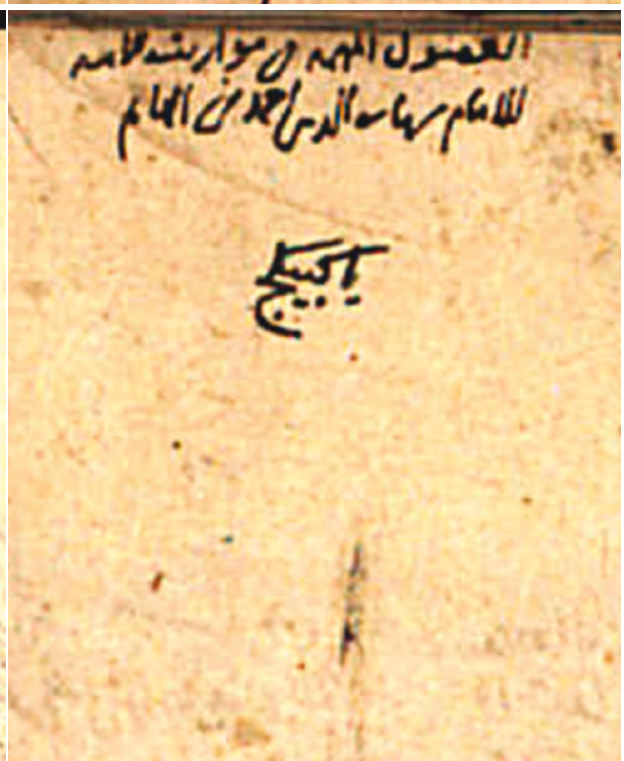 الفصول المهمه في مواريث الامه
للامام شهاب الدين احمد بن الهايم
يا كبيكج